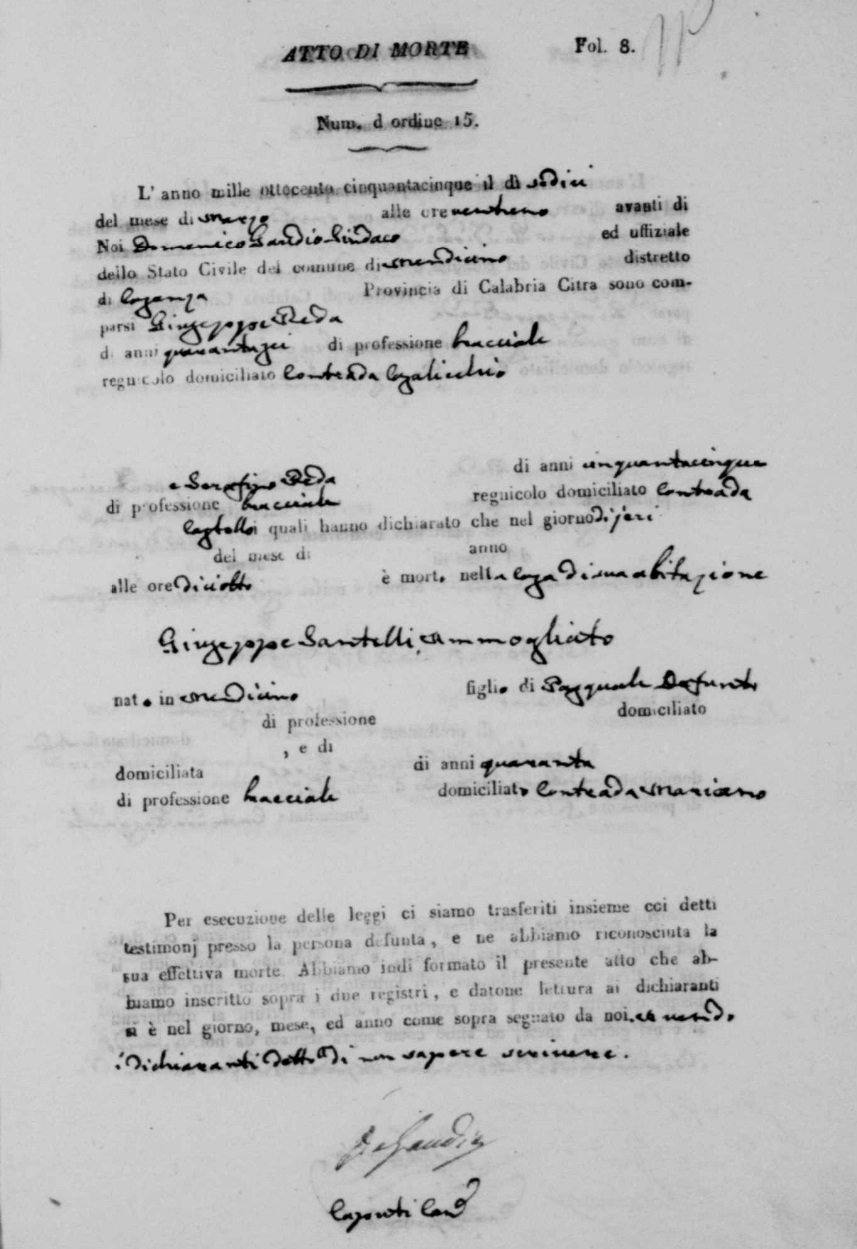 ATTO DI MORTE Fol. 8.
Num. d ordine 15.
L' anno mille ottocento cinquantacinque il dì sedici
del mese di Marzo alle ore ventuno avanti di
Noi Domenico Gaudio Sindaco ed uffiziale
dello Stato Civile del comune di Mendicino distretto
di Cosenza Provincia di Calabria Citra sono com-
parsi Giuseppe Reda
di anni quarantasei di professione bracciale
regnicolo domiciliato Contrada Casalicchio
e Serafino Reda di anni cinquantacinque
di professione bracciale regnicolo domiciliato Contrada
Castello i quali hanno dichiarato che nel giorno di jeri
del mese di anno
alle ore diciotto è mort. nella casa di sua abitazione
Giuseppe Santelli, ammogliato
nato in Mendicino figlio di Pasquale Defunto
di professione domiciliato
, e di
domiciliata di anni quaranta
di professione bracciale domiciliato Contrada Mariano
Per esecuzione delle leggi ci siamo trasferiti insieme coi detti
testimonj presso la persona defunta, e ne abbiamo riconosciuta la
sua effettiva morte. Abbiamo indi formato il presente atto che ab-
biamo inscritto sopra i due registri, e datone lettura ai dichiaranti
si è nel giorno, mese, ed anno come sopra segnato da noi. avendo
i dichiaranti detto di non sapere scrivere.
D. Gaudio